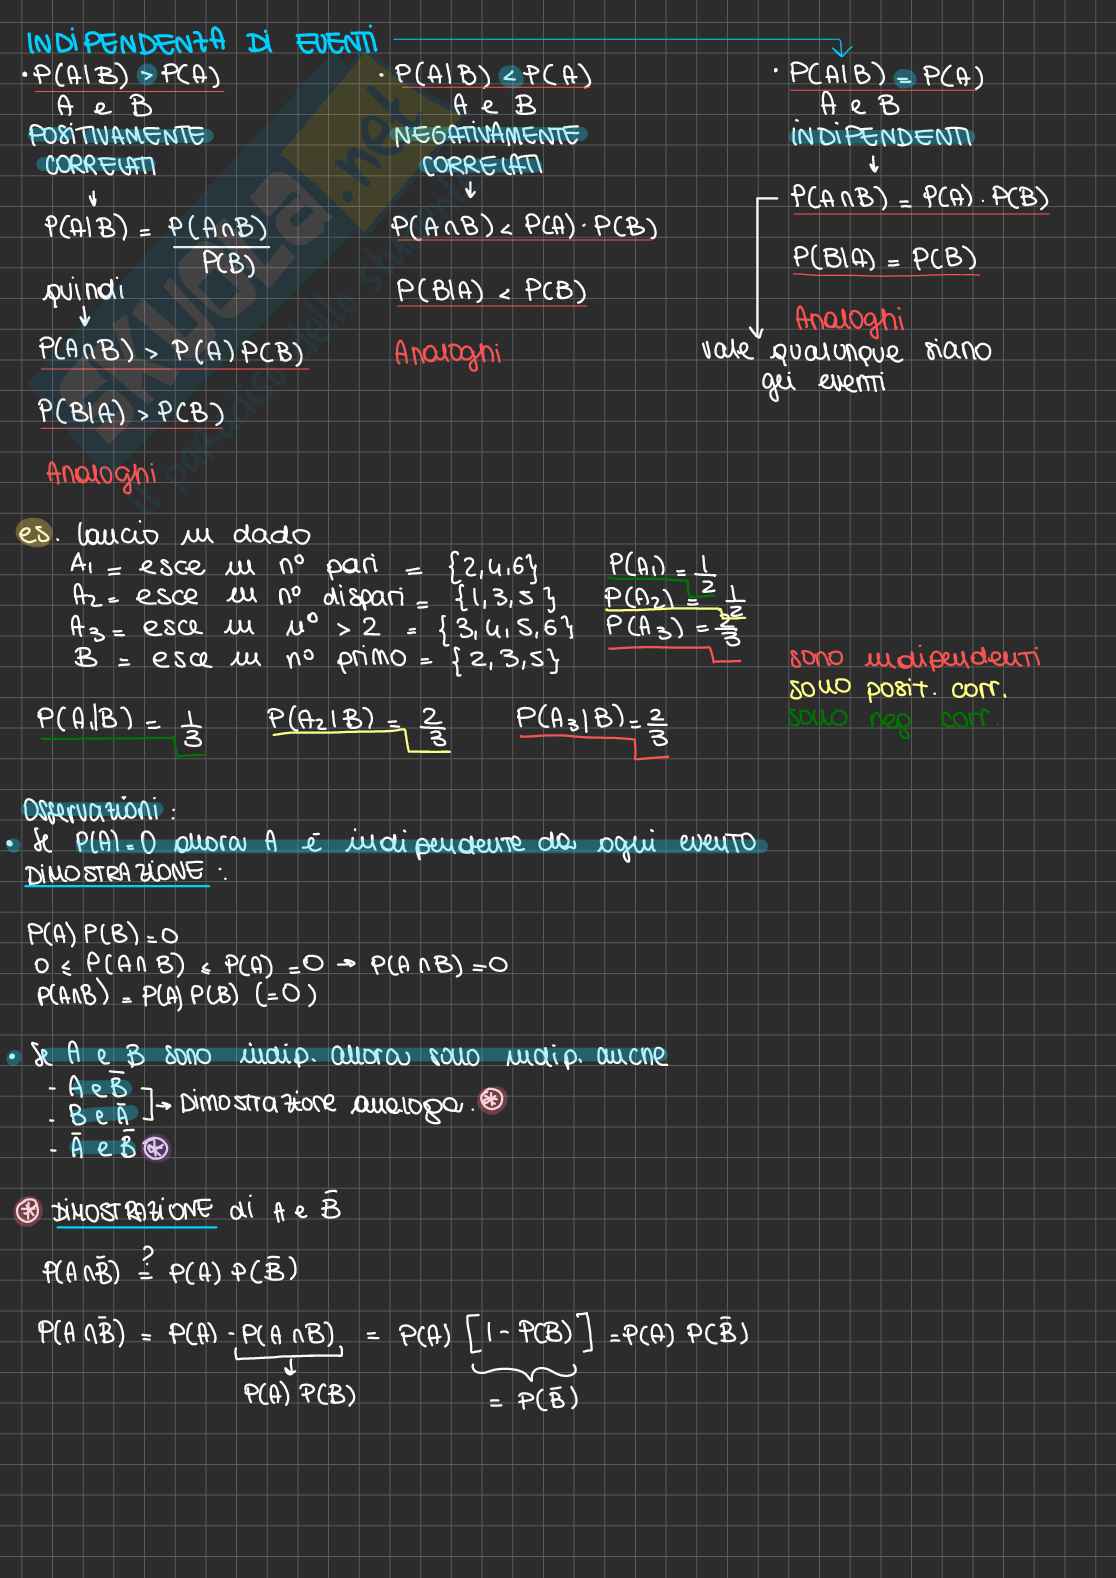 INDIPENDENZA DI EVENTI
· P(A|B) > P(A)
A e B
POSITIVAMENTE
CORRELATI
↓
P(A|B) = P(A∩B) / P(B)
quindi
↓
P(A∩B) > P(A) P(B)
P(B|A) > P(B)
Analoghi
· P(A|B) < P(A)
A e B
NEGATIVAMENTE
CORRELATI
↓
P(A∩B) < P(A) · P(B)
P(B|A) < P(B)
Analoghi
· P(A|B) = P(A)
A e B
INDIPENDENTI
↓
P(A∩B) = P(A) · P(B)
P(B|A) = P(B)
Analoghi
vale qualunque siano
gei eventi
es. lancio un dado
A₁ = esce un n° pari = {2,4,6} P(A₁) = 1/2
A₂ = esce un n° dispari = {1,3,5} P(A₂) = 1/2
A₃ = esce un n° > 2 = {3,4,5,6} P(A₃) = 2/3
B = esce un n° primo = {2,3,5}
sono indipendenti
sono posit. corr.
sono neg corr
P(A₁|B) = 1/3 P(A₂|B) = 2/3 P(A₃|B) = 2/3
Osservazioni:
• Se P(A) = 0 allora A è indipendente da ogni evento
DIMOSTRAZIONE:
P(A) P(B) = 0
0 ≤ P(A∩B) ≤ P(A) = 0 → P(A∩B) = 0
P(A∩B) = P(A) P(B) (=0)
• Se A e B sono indip. allora sono indip. anche
- A e B̄
- B e Ā ] → DIMOSTRAZIONE analoga. ⊛
- Ā e B̄ ⊛
⊛ DIMOSTRAZIONE di A e B̄
P(A∩B̄) ?= P(A) P(B̄)
P(A∩B̄) = P(A) - P(A∩B) = P(A) [1 - P(B)] = P(A) P(B̄)
↓
P(A) P(B) = P(B̄)
SKUOLA.net